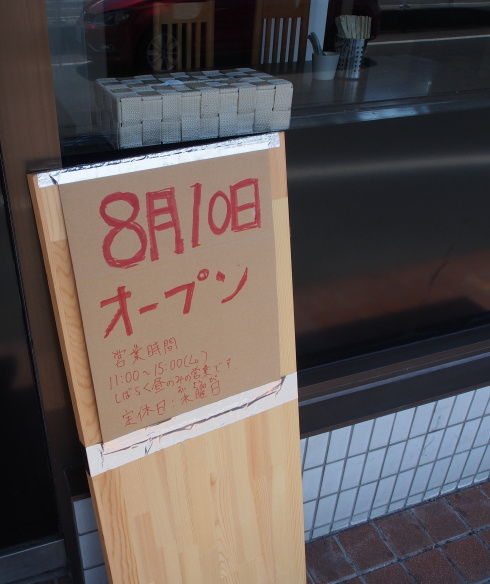 8月10日
オープン
営業時間
11:00~15:00(L.o)
しばらく昼のみの営業です
定休日:水曜日